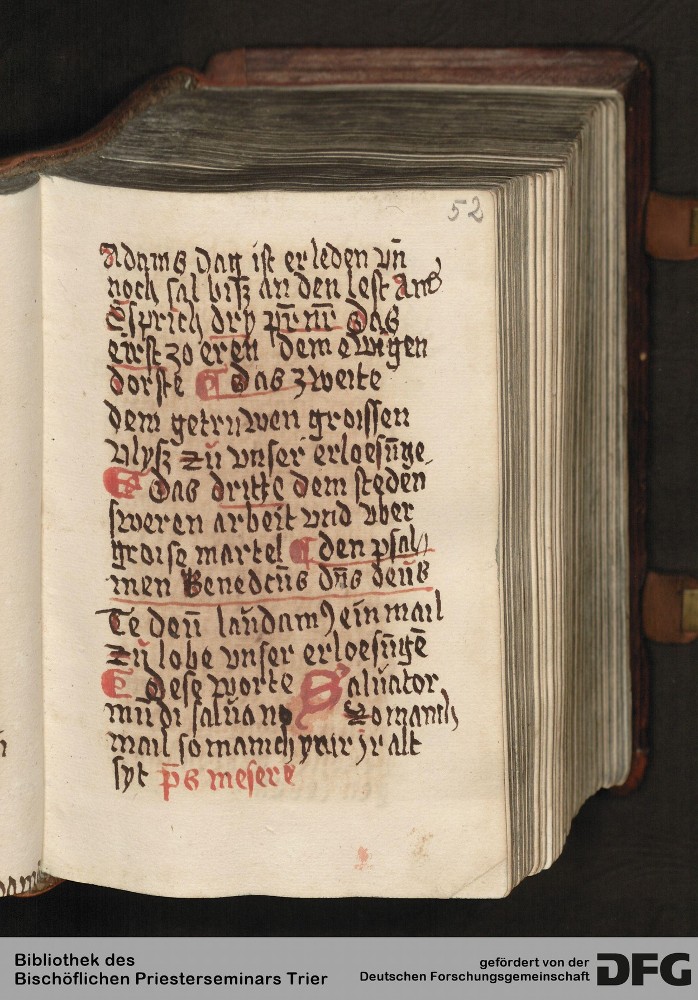 52
Adams dag ist erleden vn̄
noch sal biß an den lest and
Esprich dry pr̄ nr̄ Das
eirst zo eren dem ewigen
dorste Das zweite
dem getruwen groissen
vlyß zů vnser erloesūge
Das dritte dem steden
sweren arbeit vnd vber
groise martel den psal
men Benedcūs dn̄s deus
Te deū laudam ein mail
Zů lobe vnser erloesūgē
Dese worte Saluator
mūdi salua nos Zo manich
mail so manich yair ir alt
syt p̄s meserē
Bibliothek des
Bischöflichen Priesterseminars Trier
gefördert von der
Deutschen Forschungsgemeinschaft
DFG